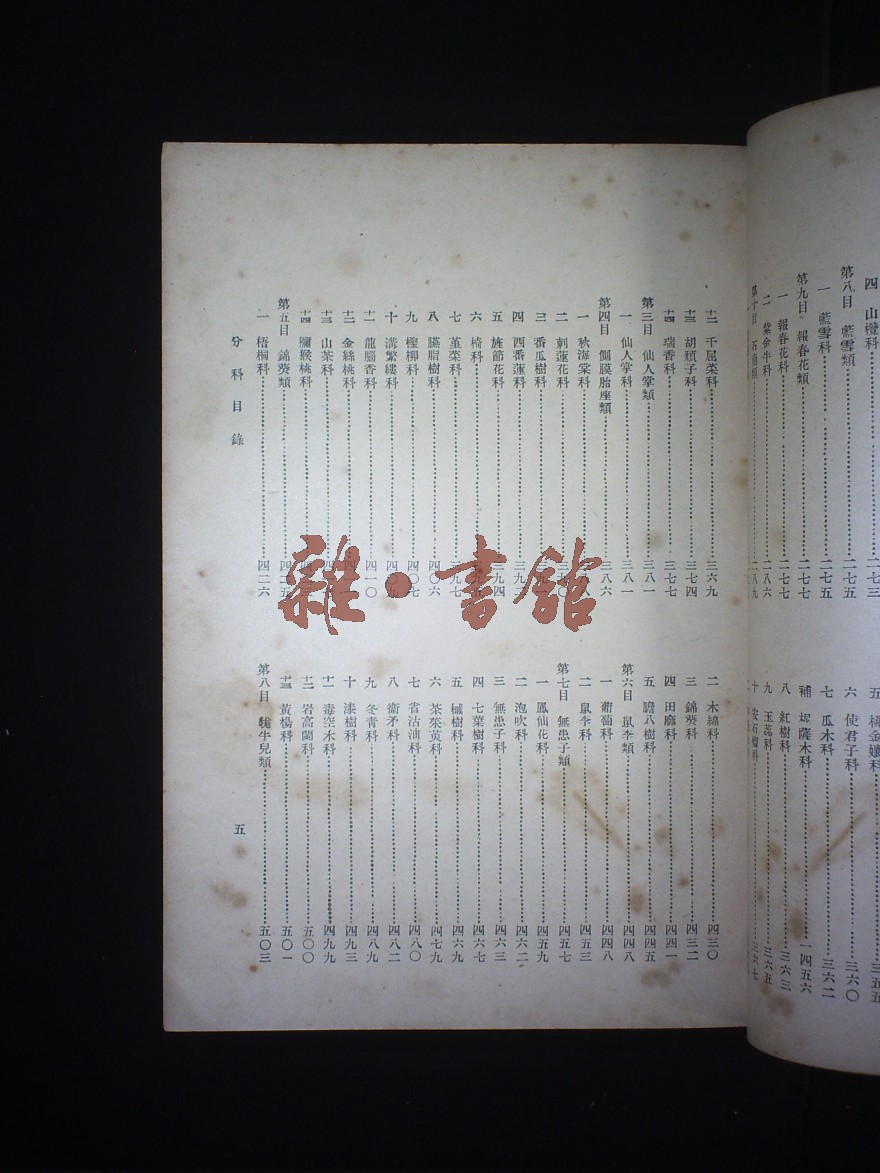 四 山欖科……二七三
第八目 藍雪類……二七五
一 藍雪科……二七五
第九目 報春花類……二七七
一 報春花科……二七七
二 紫金牛科……二八六
第十目 石南類……二八九
五 桃金孃科……三五五
六 使君子科……三六〇
七 瓜木科……三六二
補 堀薩木科……一四五六
八 紅樹科……三六三
九 玉蕊科……三六五
十 安石榴科……三六七
十一 千屈菜科……三六九
十二 胡頽子科……三七四
十三 瑞香科……三七七
第三目 仙人掌類……三八一
一 仙人掌科……三八一
第四目 側膜胎座類……三八六
一 秋海棠科
二 刺蓮花科
三 番瓜樹科
四 西番蓮科……三九二
五 旌節花科……三九四
六 椅科
七 菫菜科……三九七
八 臙脂樹科……四〇六
九 檉柳科……四〇七
十 溝繁縷科……四〇九
十一 龍腦香科……四一〇
十二 金絲桃科
十三 山茶科
十四 獼猴桃科
第五目 錦葵類……四二五
一 梧桐科……四二六
二 木綿科……四三〇
三 錦葵科……四三二
四 田麻科……四四一
五 膽八樹科……四四五
第六目 鼠李類……四四八
一 葡萄科……四四八
二 鼠李科……四五三
第七目 無患子類……四五七
一 鳳仙花科……四五九
二 泡吹科……四六二
三 無患子科……四六三
四 七葉樹科……四六七
五 槭樹科……四六九
六 茶茱萸科……四七九
七 省沽油科……四八〇
八 衞矛科……四八二
九 冬青科……四八九
十 漆樹科……四九三
十一 毒空木科……四九九
十二 岩高蘭科……五〇〇
十三 黃楊科……五〇一
第八目 牻牛兒類……五〇三
分科目錄
五
雜·書館